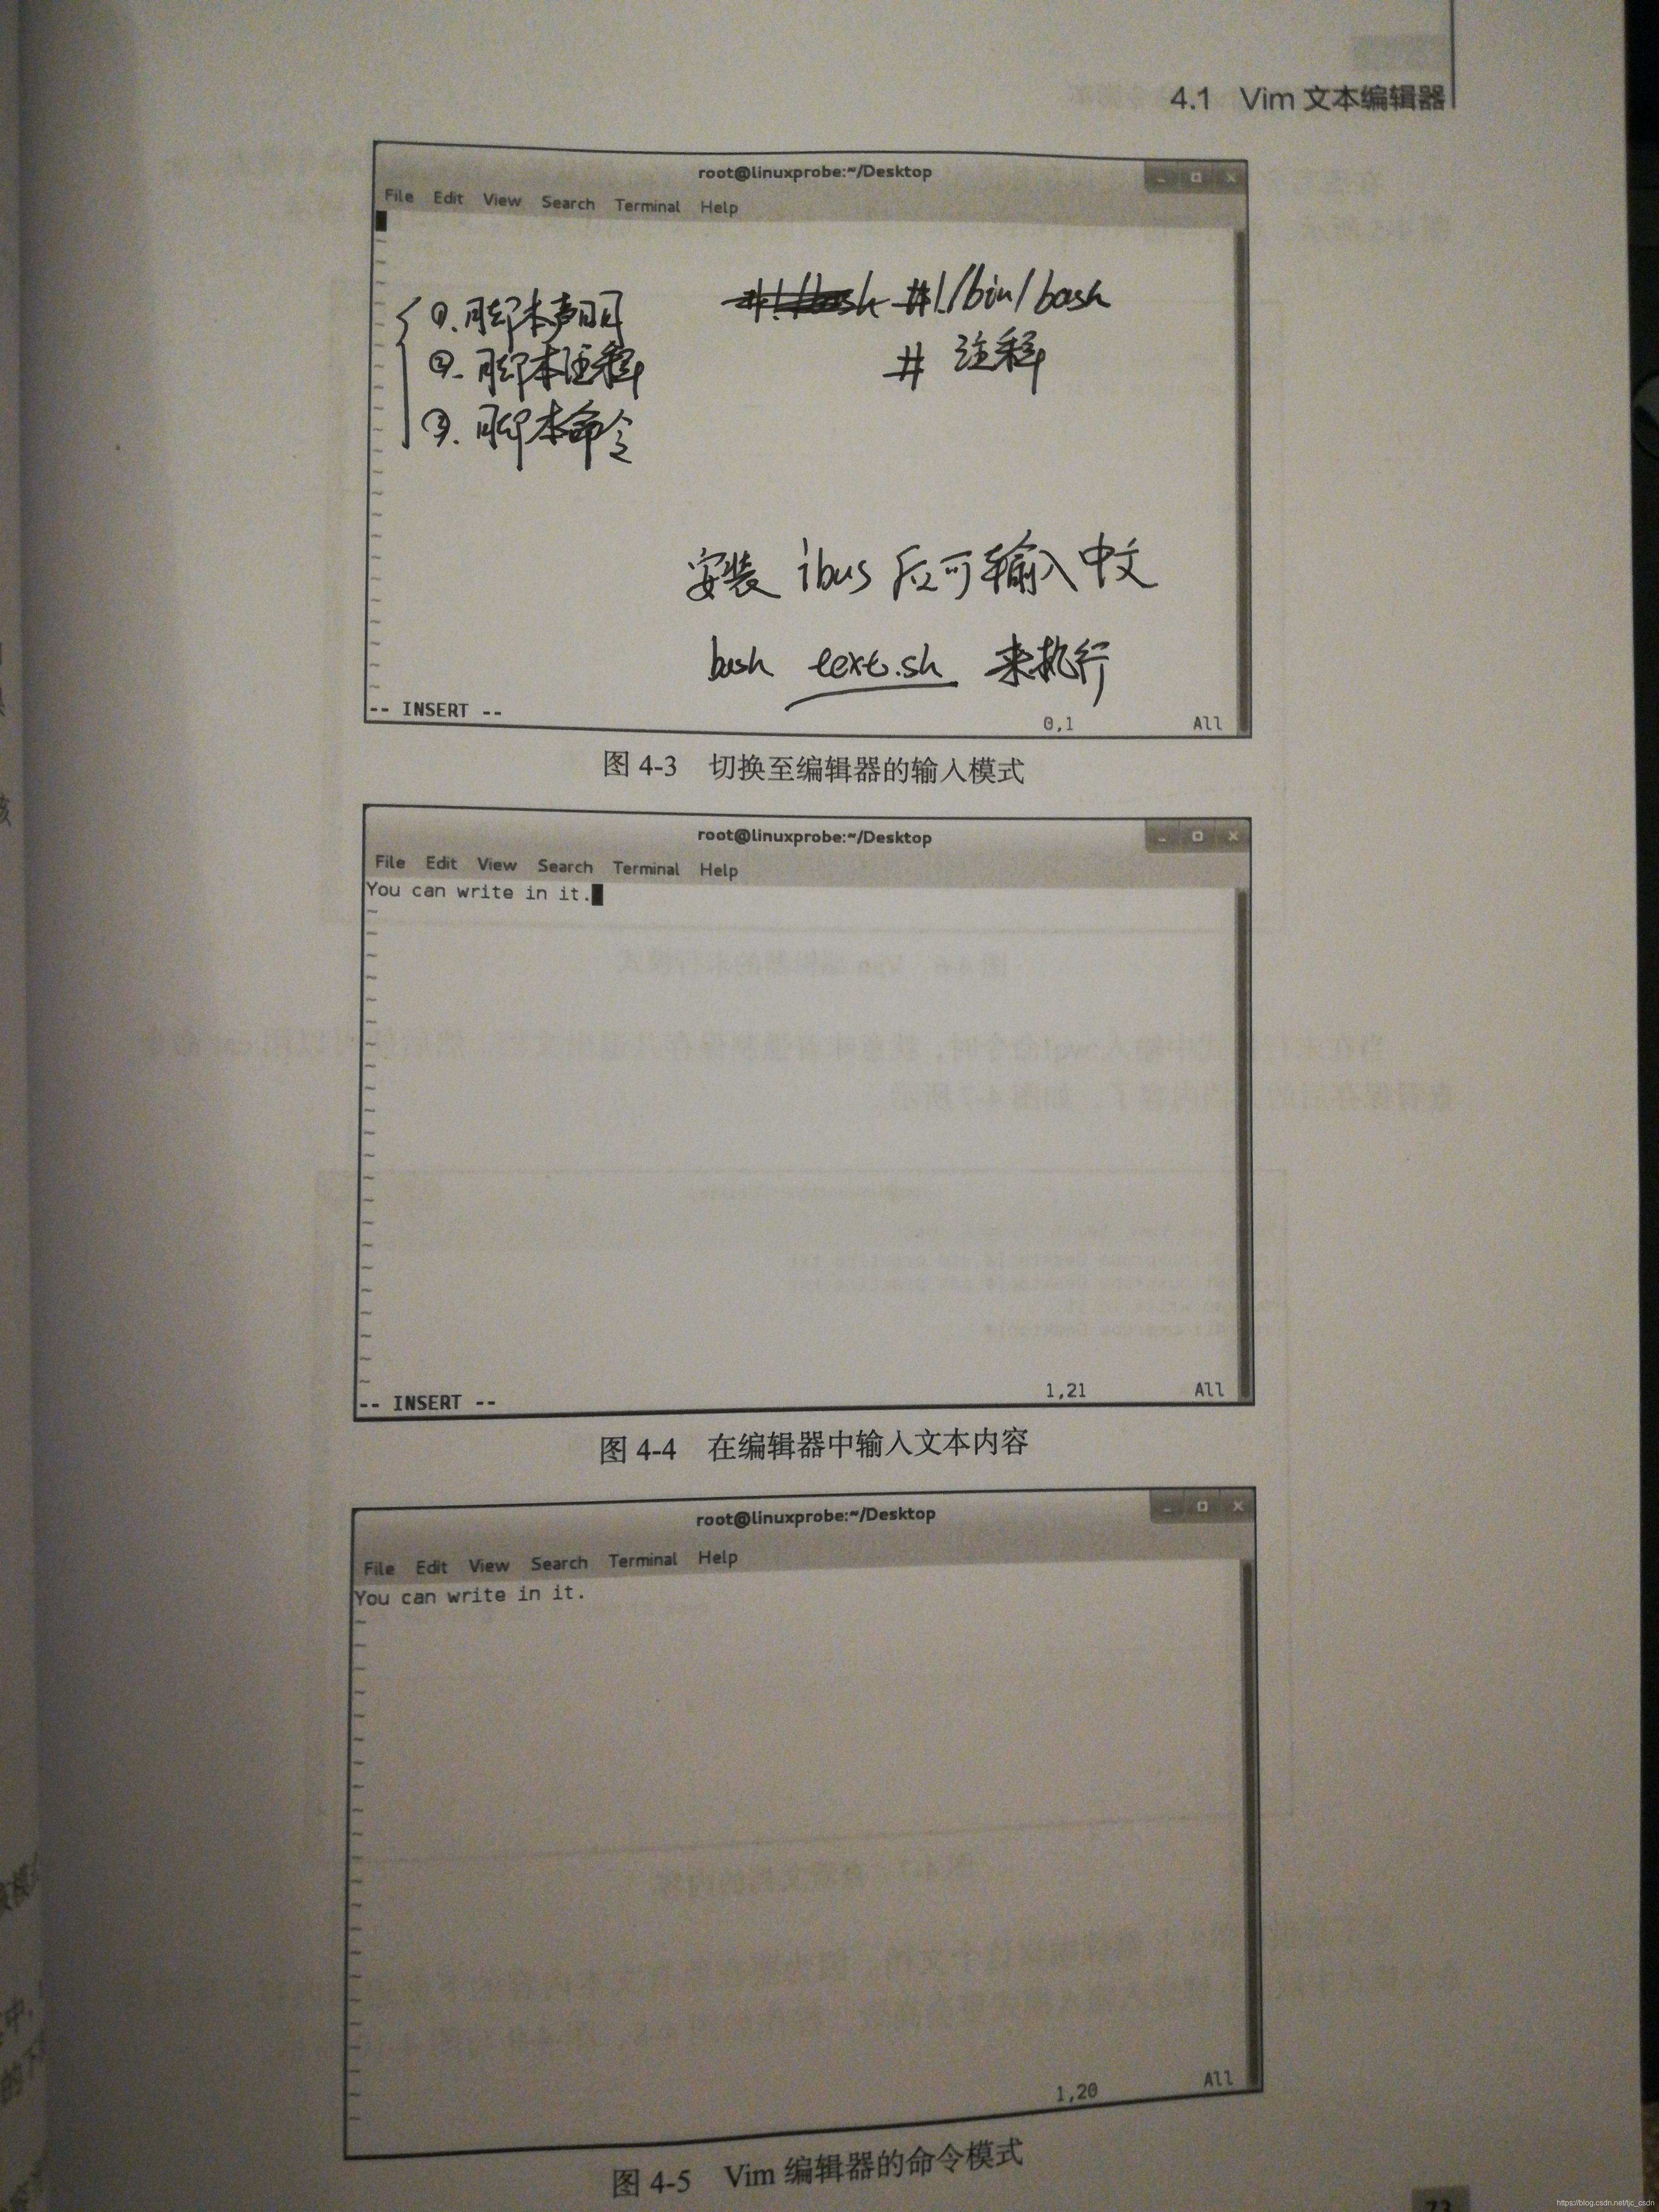 4.1 Vim 文本编辑器
root@linuxprobe:~/Desktop
File Edit View Search Terminal Help
①.脚本声明 #!/bash #!/bin/bash
②.脚本注释 # 注释
③.脚本命令
安装 ibus 后可输入中文
bash text.sh 来执行
-- INSERT -- 0,1 All
图 4-3 切换至编辑器的输入模式
root@linuxprobe:~/Desktop
File Edit View Search Terminal Help
You can write in it.
-- INSERT -- 1,21 All
图 4-4 在编辑器中输入文本内容
root@linuxprobe:~/Desktop
File Edit View Search Terminal Help
You can write in it.
1,20 All
图 4-5 Vim 编辑器的命令模式
73
https://blog.csdn.net/tjc_csdn